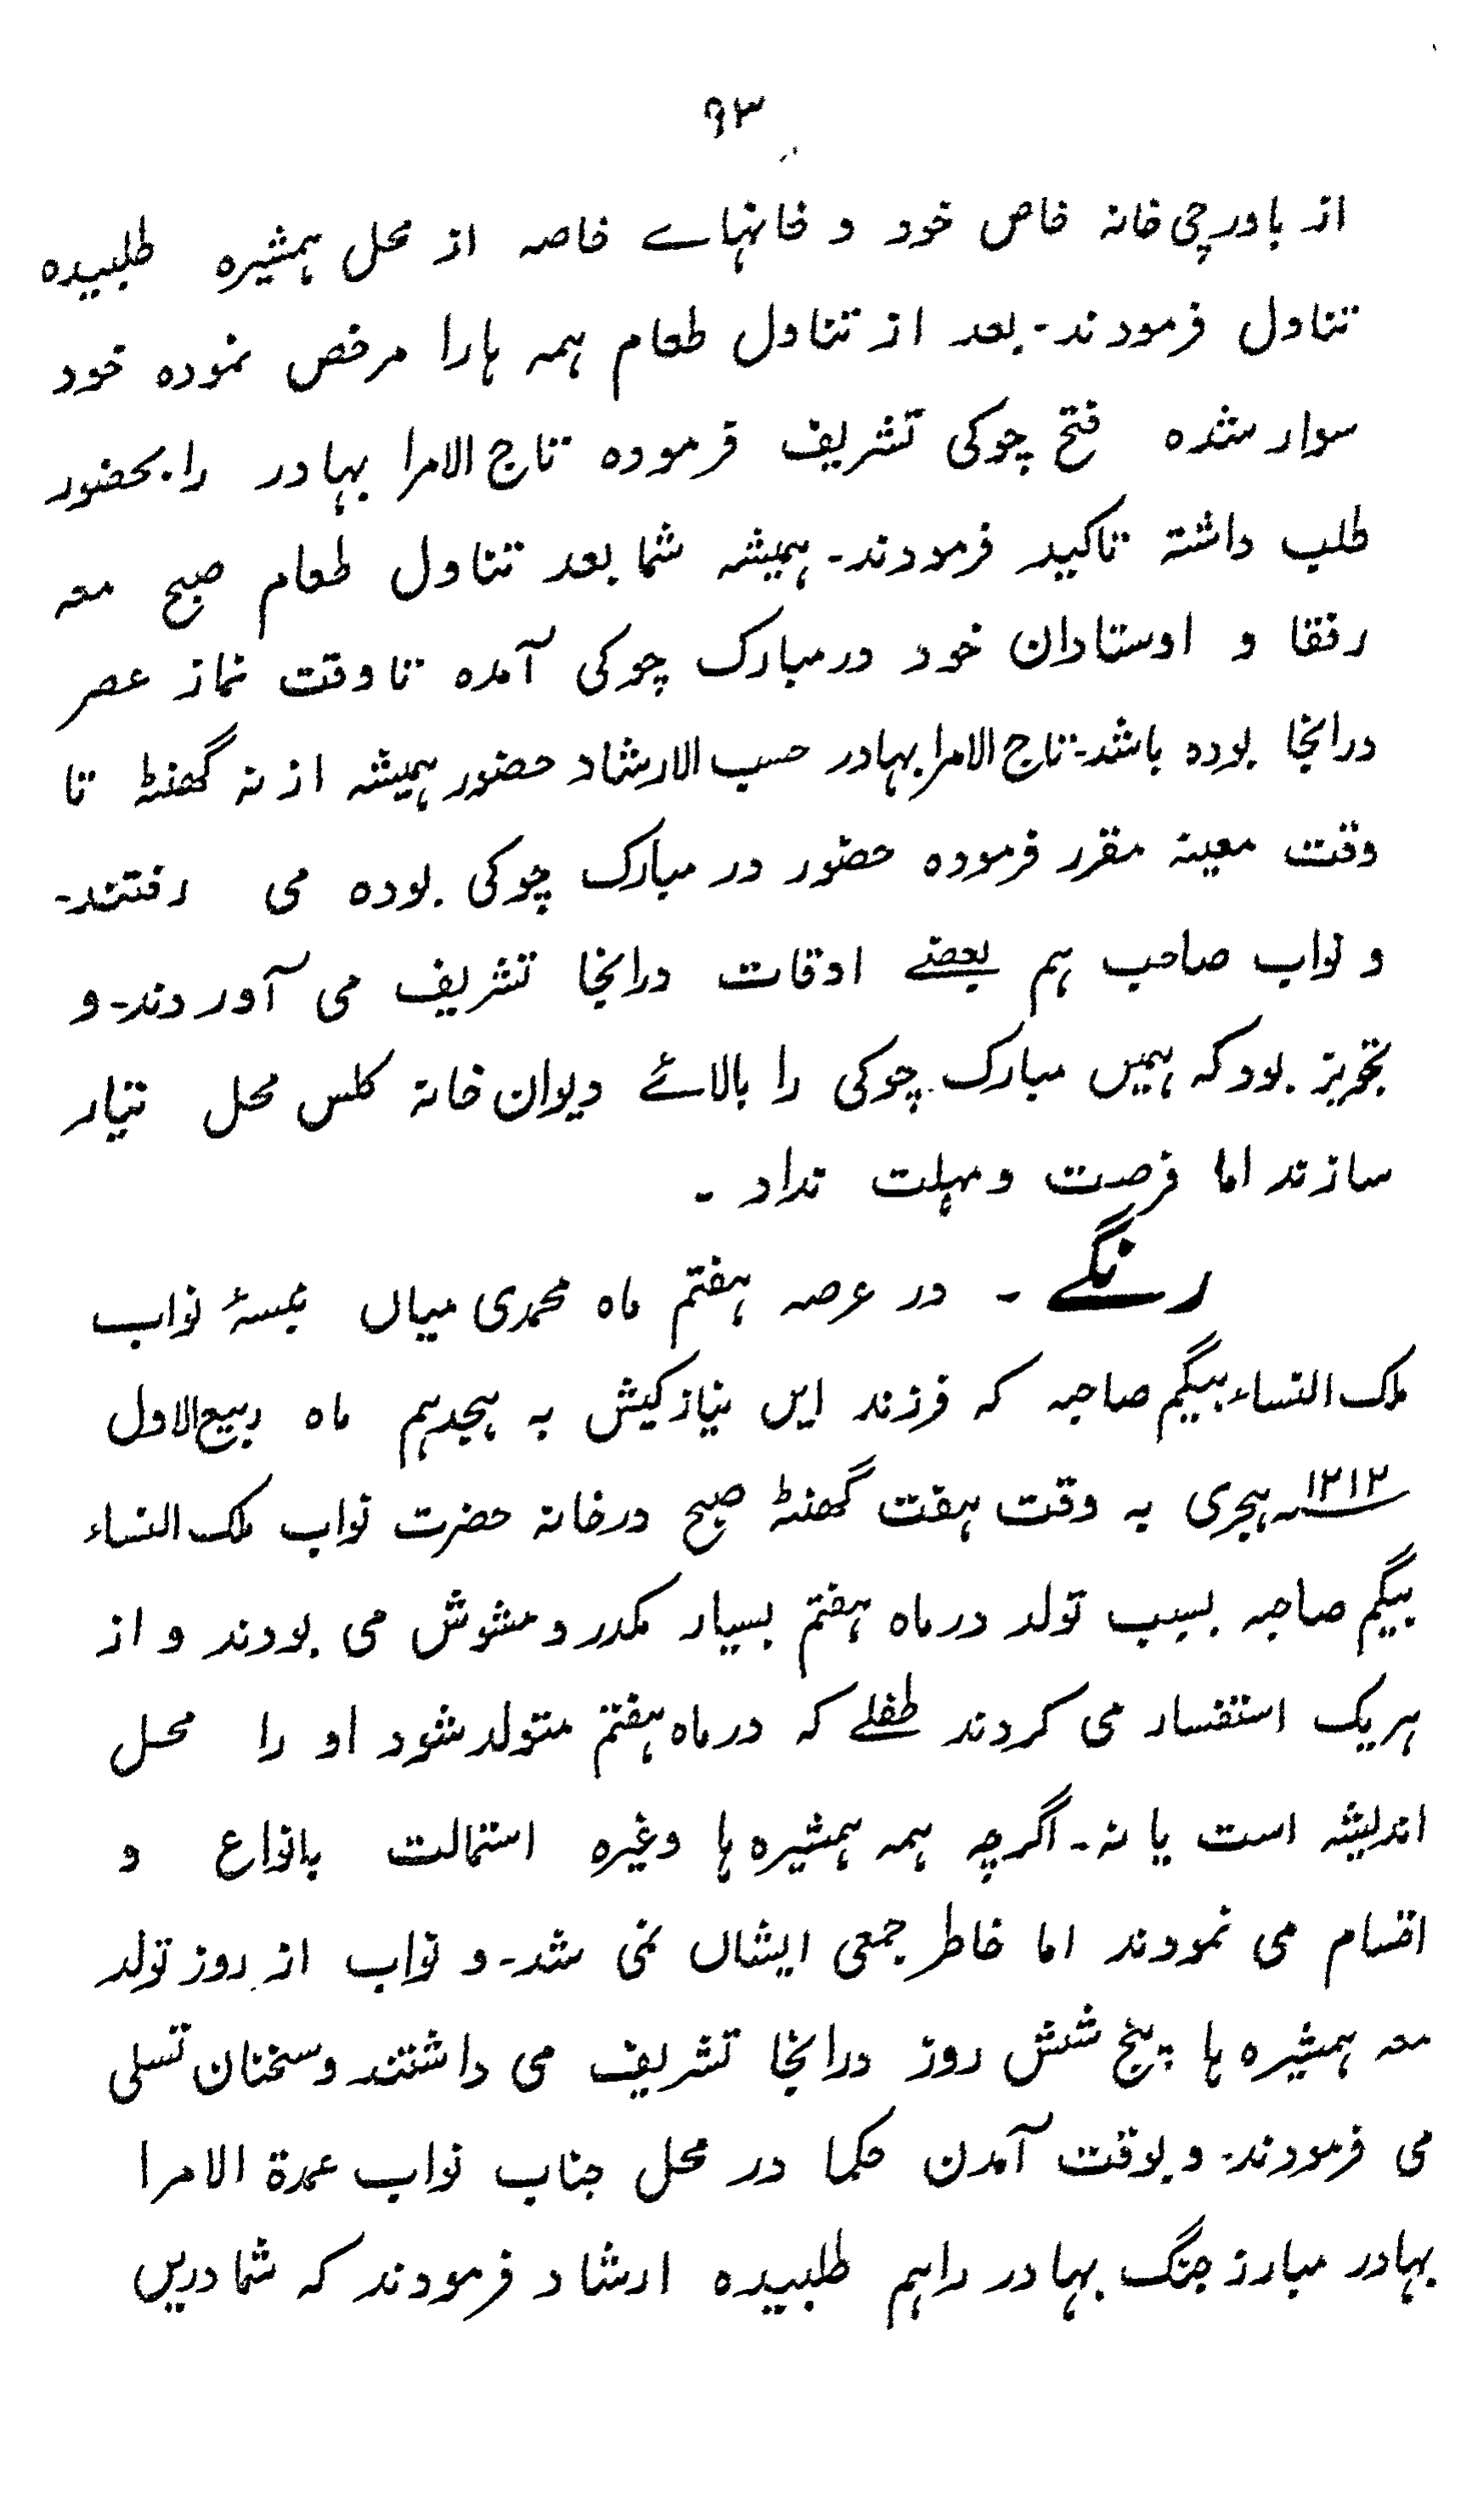 ۹۳
از باورچی خانہ خاص خود و خانہاے خاصہ از محل ہمشیرہ طلبیدہ
تناول فرمودند۔ بعد از تناول طعام ہمہ ہارا مرخص نمودہ خود
سوار شدہ فتح چوکی تشریف فرمودہ تاج الامرا بہادر را بحضور
طلب داشتہ تاکید فرمودند۔ ہمیشہ شما بعد تناول طعام صبح معہ
رفقا و اوستادان خود در مبارک چوکی آمدہ تا وقت نماز عصر
درانجا بودہ باشد۔ تاج الامرا بہادر حسب الارشاد حضور ہمیشہ از نہ گھنٹہ تا
وقت معینہ مقرر فرمودہ حضور در مبارک چوکی بودہ می رفتند۔
و نواب صاحب ہم بعضے اوقات درانجا تشریف می آوردند۔ و
تجویز بود کہ ہمیں مبارک چوکی را بالائے دیوان خانہ کلس محل تیار
سازند اما فرصت و مہلت نداد ۔
رنگے ۔ در عرصہ ہفتم ماہ محمدی میاں نبسۂ نواب
ملک النساء بیگم صاحبہ کہ فرزند ایں نیاز کیش بہ ہجدہم ماہ ربیع الاول
۱۲۱۲ ہجری بہ وقت ہفت گھنٹہ صبح در خانہ حضرت نواب ملک النساء
بیگم صاحبہ بسبب تولد در ماہ ہفتم بسیار مکدر و مشوش می بودند و از
ہر یک استفسار می کردند طفلے کہ در ماہ ہفتم متولد شود او را محل
اندیشہ است یا نہ۔ اگرچہ ہمہ ہمشیرہ ہا وغیرہ استمالت بانواع و
اقسام می نمودند اما خاطر جمعی ایشاں نمی شد۔ و نواب از روز تولد
معہ ہمشیرہ ہا پنج شش روز درانجا تشریف می داشتند و سخنان تسلی
می فرمودند۔ و بوقت آمدن حکما در محل جناب نواب عمدۃ الامرا
بہادر مبارز جنگ بہادر را ہم طلبیدہ ارشاد فرمودند کہ شما دریں